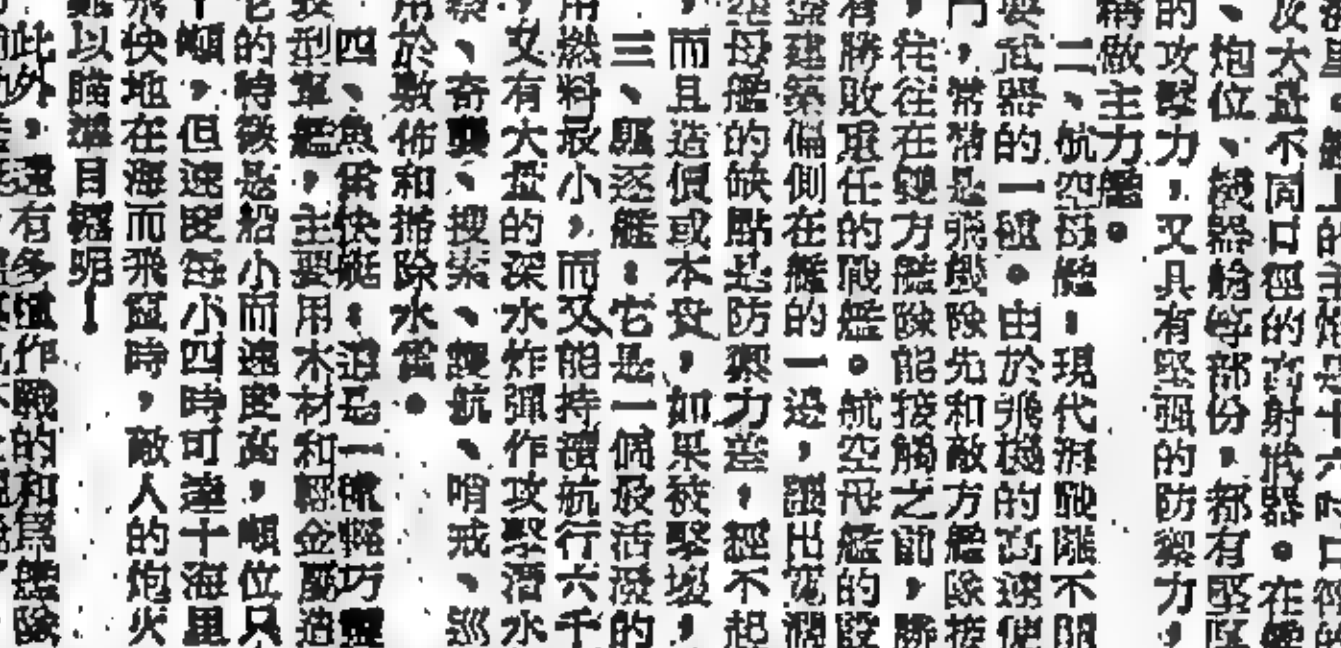 的主炮是十六吋口徑的
及大量不同口徑的高射武器。在艦
、炮位、機器艙等部份，都有堅
的攻擊力，又具有堅强的防禦力，
稱做主力艦。
二、航空母艦：現代海戰離不開
要武器的一種。由於飛機的高速使
門，常常是飛機隊先和敵方艦隊接
，往往在雙方艦隊能接觸之前，勝
有勝敗重任的戰艦。航空母艦的設
築建築偏側在艦的一邊，讓出寬濶
空母艦的缺點是防禦力差，經不起
，而且造價或本貴，如果被擊壞，
三、驅逐艦：它是一個最活潑的
用燃料最小，而又能持續航行六千
，又有大量的深水炸彈作攻擊潛水
、奇襲、搜索、護航、哨戒、巡
用於敷佈和掃除水雷。
四、魚雷快艇：這是一種輕巧靈
型軍艦，主要用木材和輕金屬造
它的特徵是船小而速度高，噸位只
十噸，但速度每小四時可達十海里
快地在海而飛竄時，敵人的炮火
以瞄準目標呢！
此外，還有多種作戰的和爲艦隊